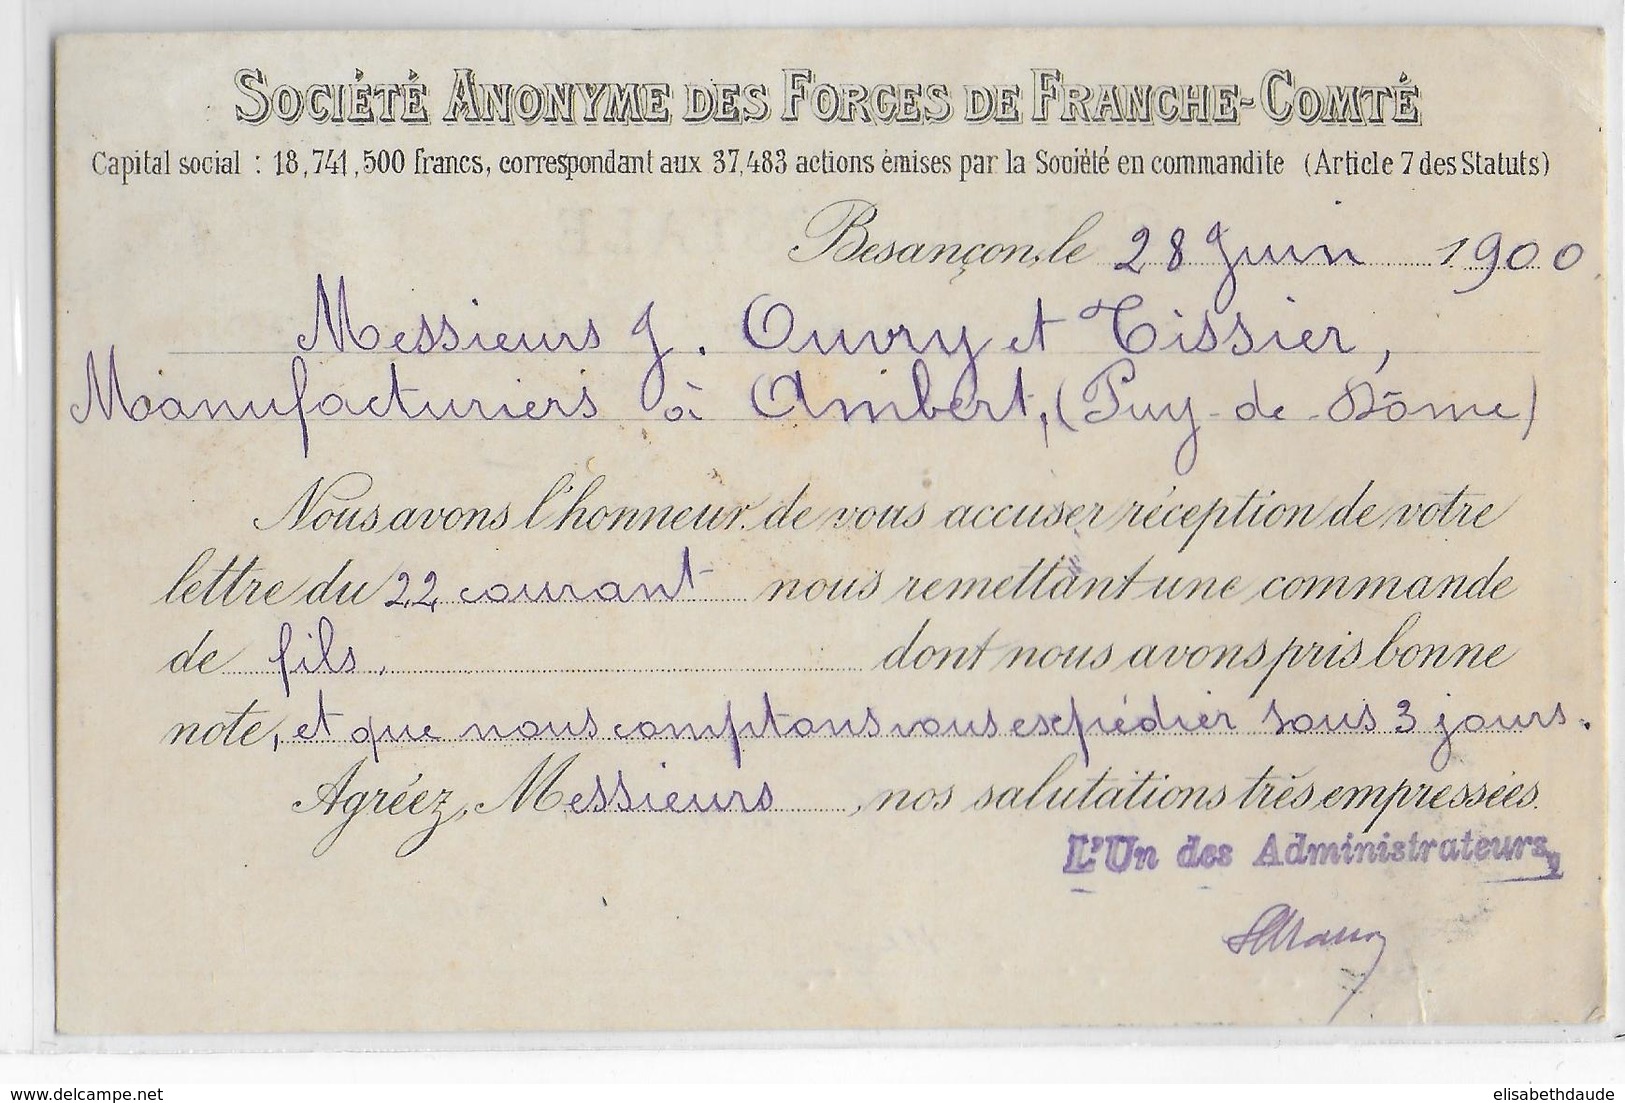 SOCIÉTÉ ANONYME DES FORGES DE FRANCHE-COMTÉ
Capital social : 18,741,500 francs, correspondant aux 37,483 actions émises par la Société en commandite (Article 7 des Statuts)
Besançon, le 28 Juin 1900
Messieurs J. Ouvry et Tissier,
Manufacturiers à Ambert, (Puy-de-Dôme)
Nous avons l'honneur de vous accuser réception de votre
lettre du 22 courant nous remettant une commande
de fils. dont nous avons pris bonne
note, et que nous comptons vous expédier sous 3 jours.
Agréez, Messieurs, nos salutations très empressées.
L'Un des Administrateurs,
delcampe.net
elisabethdaude